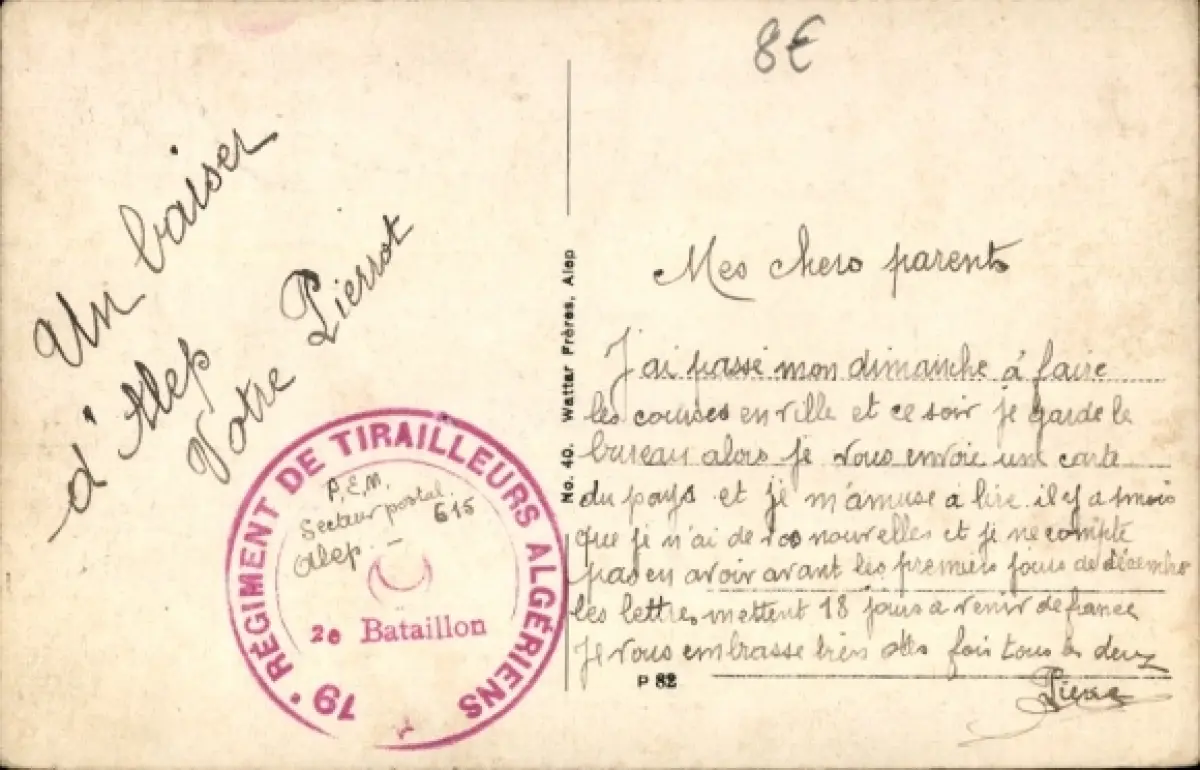 8€
Un baiser
d'Alep
Votre Pierrot
19e RÉGIMENT DE TIRAILLEURS ALGÉRIENS
P.E.M.
Secteur postal.
615
Alep. –
2e Bataillon
No. 40. Wattar Frères, Alep
P 82
Mes chers parents
J'ai passé mon dimanche à faire
les courses en ville et ce soir je garde le
bureau alors je vous envoie une carte
du pays et je m'amuse a lire. il y a 1 mois
que je n'ai de vos nouvelles et je ne compte
pas en avoir avant les premiers jours de décembre
les lettres mettent 18 jours a venir de france
je vous embrasse bien des fois tous les deux
Pierre